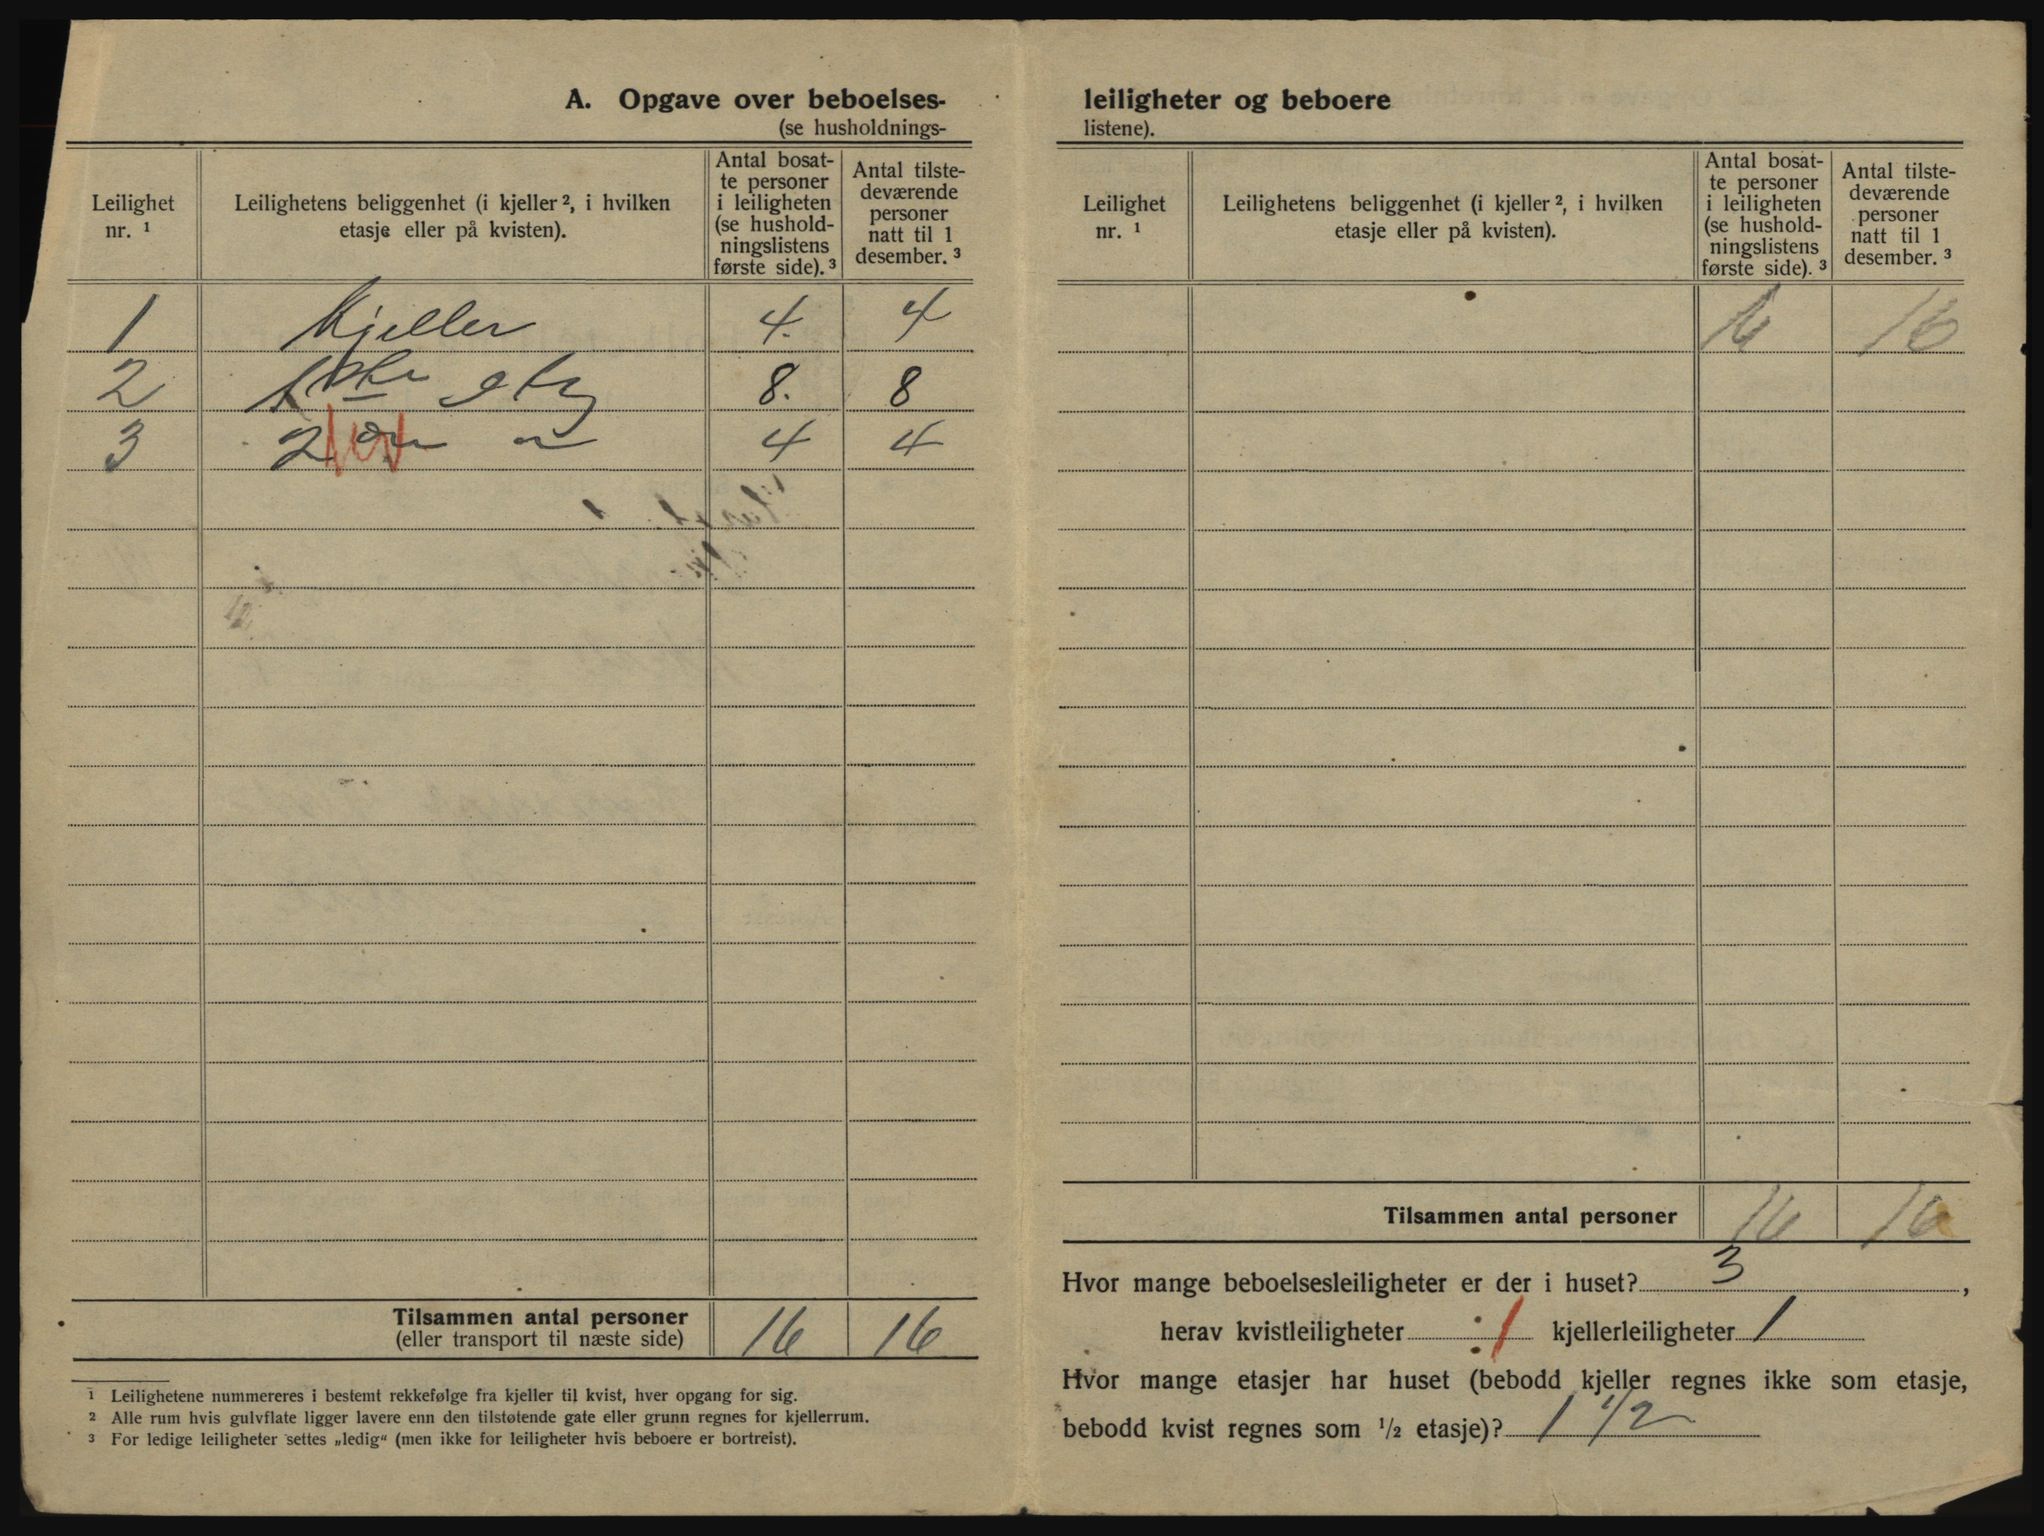 A. Opgave over beboelses-
(se husholdnings-
Leilighet nr. ¹
Leilighetens beliggenhet (i kjeller ², i hvilken etasje eller på kvisten).
Antal bosat-
te personer
i leiligheten
(se hushold-
ningslistens
første side). ³
Antal tilste-
deværende
personer
natt til 1
desember. ³
1 Kjeller 4. 4
2 1ste etg 8. 8
3 2 4 4
Tilsammen antal personer 16 16
(eller transport til næste side)
¹ Leilighetene nummereres i bestemt rekkefølge fra kjeller til kvist, hver opgang for sig.
² Alle rum hvis gulvflate ligger lavere enn den tilstøtende gate eller grunn regnes for kjellerrum.
³ For ledige leiligheter settes „ledig“ (men ikke for leiligheter hvis beboere er bortreist).
leiligheter og beboere
listene).
Leilighet nr. ¹
Leilighetens beliggenhet (i kjeller ², i hvilken etasje eller på kvisten).
Antal bosat-
te personer
i leiligheten
(se hushold-
ningslistens
første side). ³
Antal tilste-
deværende
personer
natt til 1
desember. ³
16 16
Tilsammen antal personer 16 16
Hvor mange beboelsesleiligheter er der i huset? 3,
herav kvistleiligheter 1 kjellerleiligheter 1
Hvor mange etasjer har huset (bebodd kjeller regnes ikke som etasje,
bebodd kvist regnes som ½ etasje)? 1 1/2